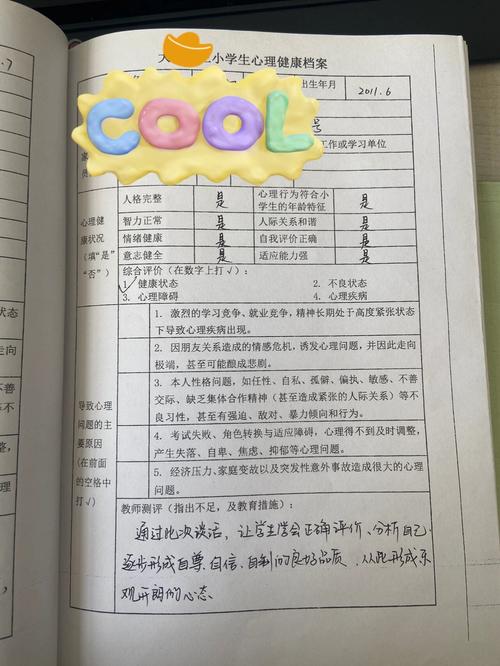 小学生心理健康档案
出生年月
2011.6
COOL
号
工作或学习单位
心理健康状况(填“是”“否”)
人格完整 是 心理行为符合小学生的年龄特征 是
智力正常 是 人际关系和谐 是
情绪健康 是 自我评价正确 是
意志健全 是 适应能力强 是
综合评价(在数字上打√):
√
1. 健康状态 2. 不良状态
3. 心理障碍 4. 心理疾病
导致心理问题的主要原因(在前面的空格中打√)
1. 激烈的学习竞争、就业竞争,精神长期处于高度紧张状态
下导致心理疾病出现。
2. 因朋友关系造成的情感危机,诱发心理问题,并因此走向
极端,甚至可能酿成悲剧。
3. 本人性格问题,如任性、自私、孤僻、偏执、敏感、不善
交际、缺乏集体合作精神(甚至造成紧张的人际关系)等不
良习性,甚至有强迫、敌对、暴力倾向和行为。
4. 考试失败、角色转换与适应障碍,心理得不到及时调整,
产生失落、自卑、焦虑、抑郁等心理问题。
5. 经济压力、家庭变故以及突发性意外事故造成很大的心理
问题。
教师测评(指出不足,及教育措施):
通过此次谈话,让学生学会正确评价、分析自己
逐步形成自尊、自信、自制的良好品质,从此形成乐
观开朗的心态